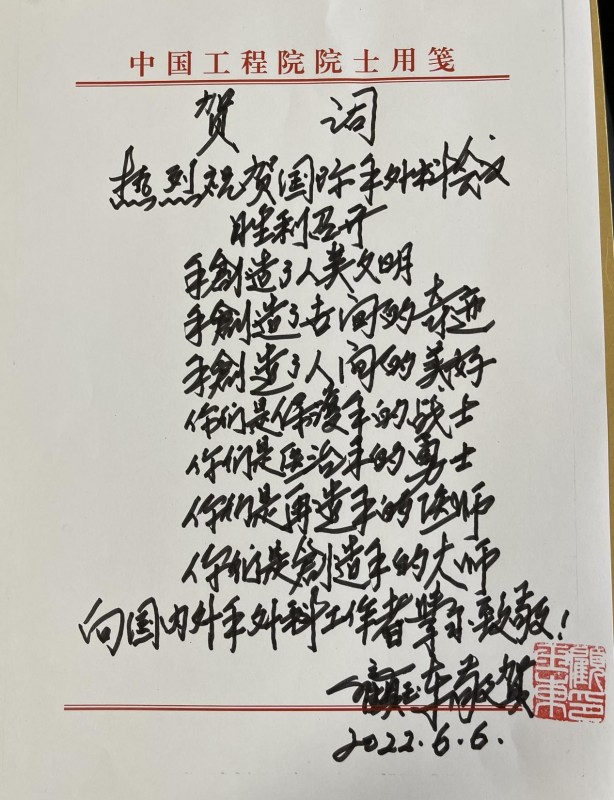 中国工程院院士用笺
贺 词
热烈祝贺国际手外科会议
胜利召开
手創造了人类文明
手創造了世间的奇迹
手創造了人间的美好
你们是保護手的战士
你们是医治手的勇士
你们是再造手的医师
你们是創造手的大师
向国内外手外科工作者學习致敬!
顧玉东敬贺
2022.6.6.